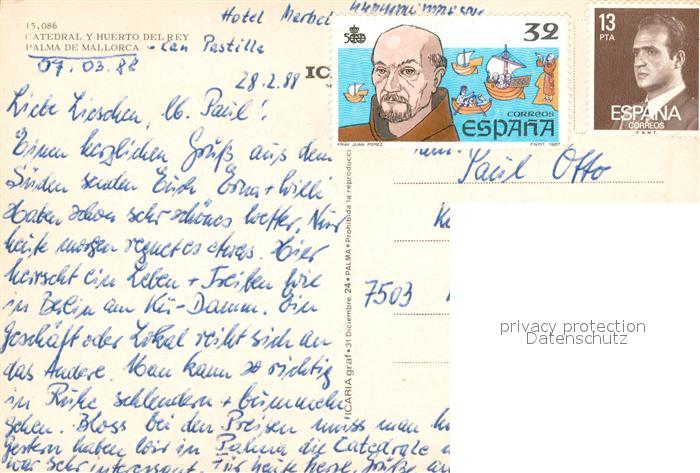 Hotel
15.086
CATEDRAL Y HUERTO DEL REY
PALMA DE MALLORCA - Can Pastilla
07.03.88
28.2.88
Liebe Lieschen, lb. Paul!
Einen herzlichen Gruß aus dem
Süden senden Euch Erna + Willi
Haben schon sehr schönes Wetter. Nur
heute morgen regnet es etwas. Hier
herrscht ein Leben + Treiben wie
in Berlin am Kü-Damm. Ein
Geschäft oder Lokal reiht sich an
das Andere. Man kann so richtig
in Ruhe schlendern + bummeln
gehen. Bloss bei den Preisen muss man
Gestern haben wir in Palma die Catedrale
war sehr interessant. Für heute herzl. Grüße
32
CORREOS
ESPAÑA
FRAY JUAN PEREZ
F.N.M.T. 1987
13
PTA
ESPAÑA
CORREOS
F.N.M.T.
Paul Otto
7503
ICARIA graf • 31 Diciembre, 24 • PALMA • Prohibida la reproducci
privacy protection
Datenschutz